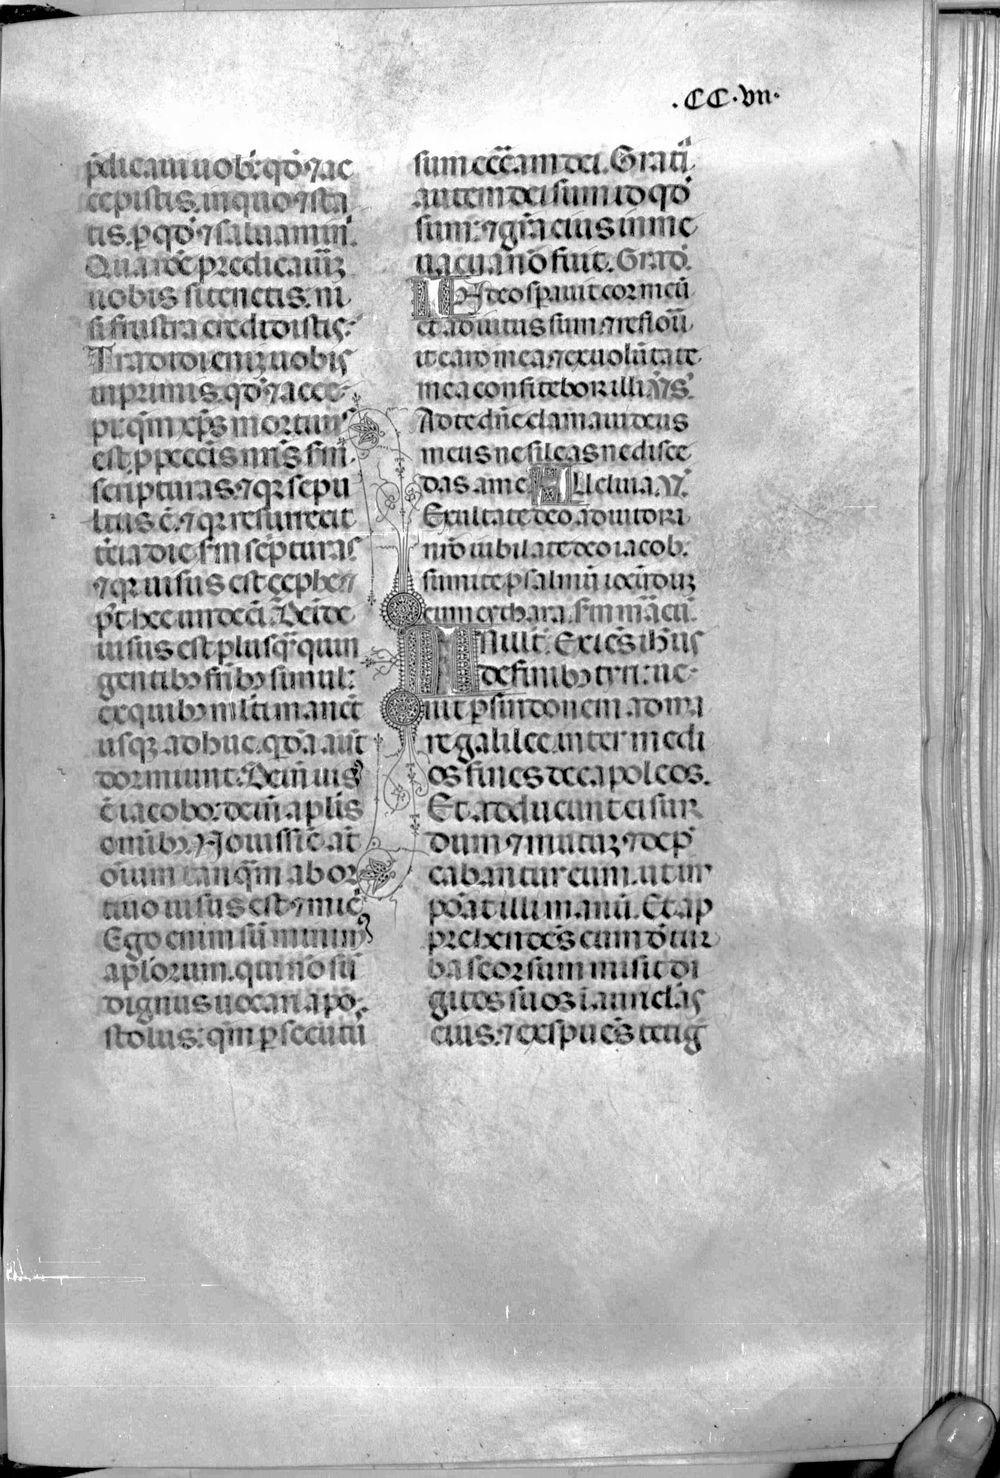 .CC.vii.
p̄dicaui uob̄. qd̄ ⁊ ac
cepistis. in quo ⁊ sta
tis. ꝑ qd̄ ⁊ saluamini.
Qua rōe predicauerꝫ
uobis si tenetis. ni
si frustra credidistis.
Tradidi enīꝫ uobis
inprimis. qd̄ ⁊ acce
pi. qm̄ xp̄s mortuus
est ꝓ pecc̄is nr̄is sm̄.
scripturas. ⁊ qꝛ sepu
ltus ē. ⁊ qꝛ resurrexit
tercia die sm̄ sc̄pturas
⁊ qꝛ uisus est cephe ⁊
pt̄ hec undeci. Deīde
uisus est plusq̄ quin
gentibꝫ fr̄ibꝫ simul:
ex quibꝫ multi manēt
usqꝫ adhuc. qd̄a aūt
dormiunt. Dein̄ uisꝰ
ē iacobo: dein̄ apl̄is
omībꝫ. Nouissīe aūt
oīum tanq̄m abor
tiuo uisus est ⁊ mic̄
Ego enim sū minimꝰ
apl̄orum. qui nō sū
dignus uocari apo
stolus: qm̄ ꝑsecutū
sum ecc̄am dei. Grati
autem dei sum id qd̄
sum: ⁊ gr̄a eius in me
uacua nō fuit. Grad̄.
IN deo sꝑauit cor meū
et adiutus sum ⁊ refloru
it caro mea ⁊ ex uolūtate
mea confitebor illi. V̄s.
Ad te dn̄e clamaui deus
meus ne sileas ne disce
das a me Alleluia. V̄.
Exultate deo adiutori
nrō iubilate deo iacob:
sumite psalmū iocūdūꝫ
cum cythara. sm̄ marcū.
IN illo t̄. Exiēs ih̄us
de finibꝫ tyri: ue
nit ꝑ sindonem ad ma
re galilee. inter medi
os fines decapoleos.
Et adducunt ei sur
dum ⁊ mutūꝫ ⁊ dep̄
cabantur eum. ut im
ponat illi manū. Et ap
prehendēs eum d̄ tur
ba seorsum misit di
gitos suos ī auriclās
eius. ⁊ exspuēs tetiḡ